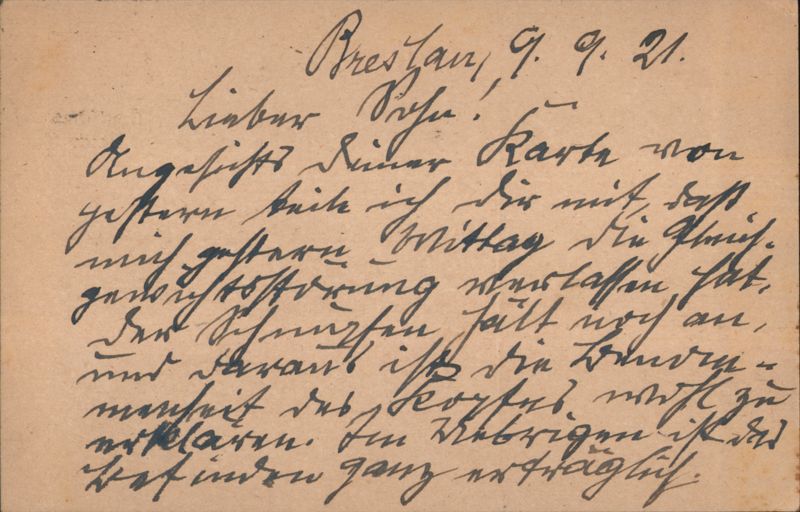 Breslau, 9. 9. 21.
Lieber Sohn!
Angesichts Deiner Karte von
gestern teile ich Dir mit, daß
mich gestern Mittag die Gleich-
gewichtsstörung verlassen hat.
Der Schnupfen hält noch an,
und daraus ist die Benom-
menheit des Kopfes wohl zu
erklären. Im Uebrigen ist das
Befinden ganz erträglich.